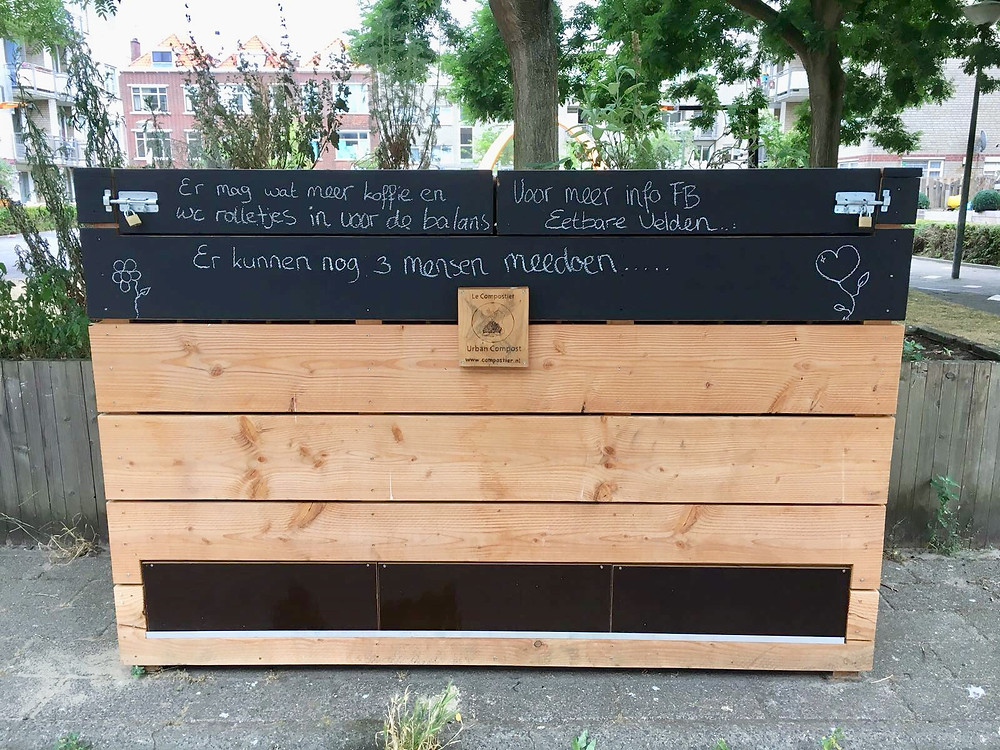 Er mag wat meer koffie en
wc rolletjes in voor de balans
Voor meer info FB
Eetbare Velden...
Er kunnen nog 3 mensen meedoen......
Le Compostier
Urban Compost
www.compostier.nl